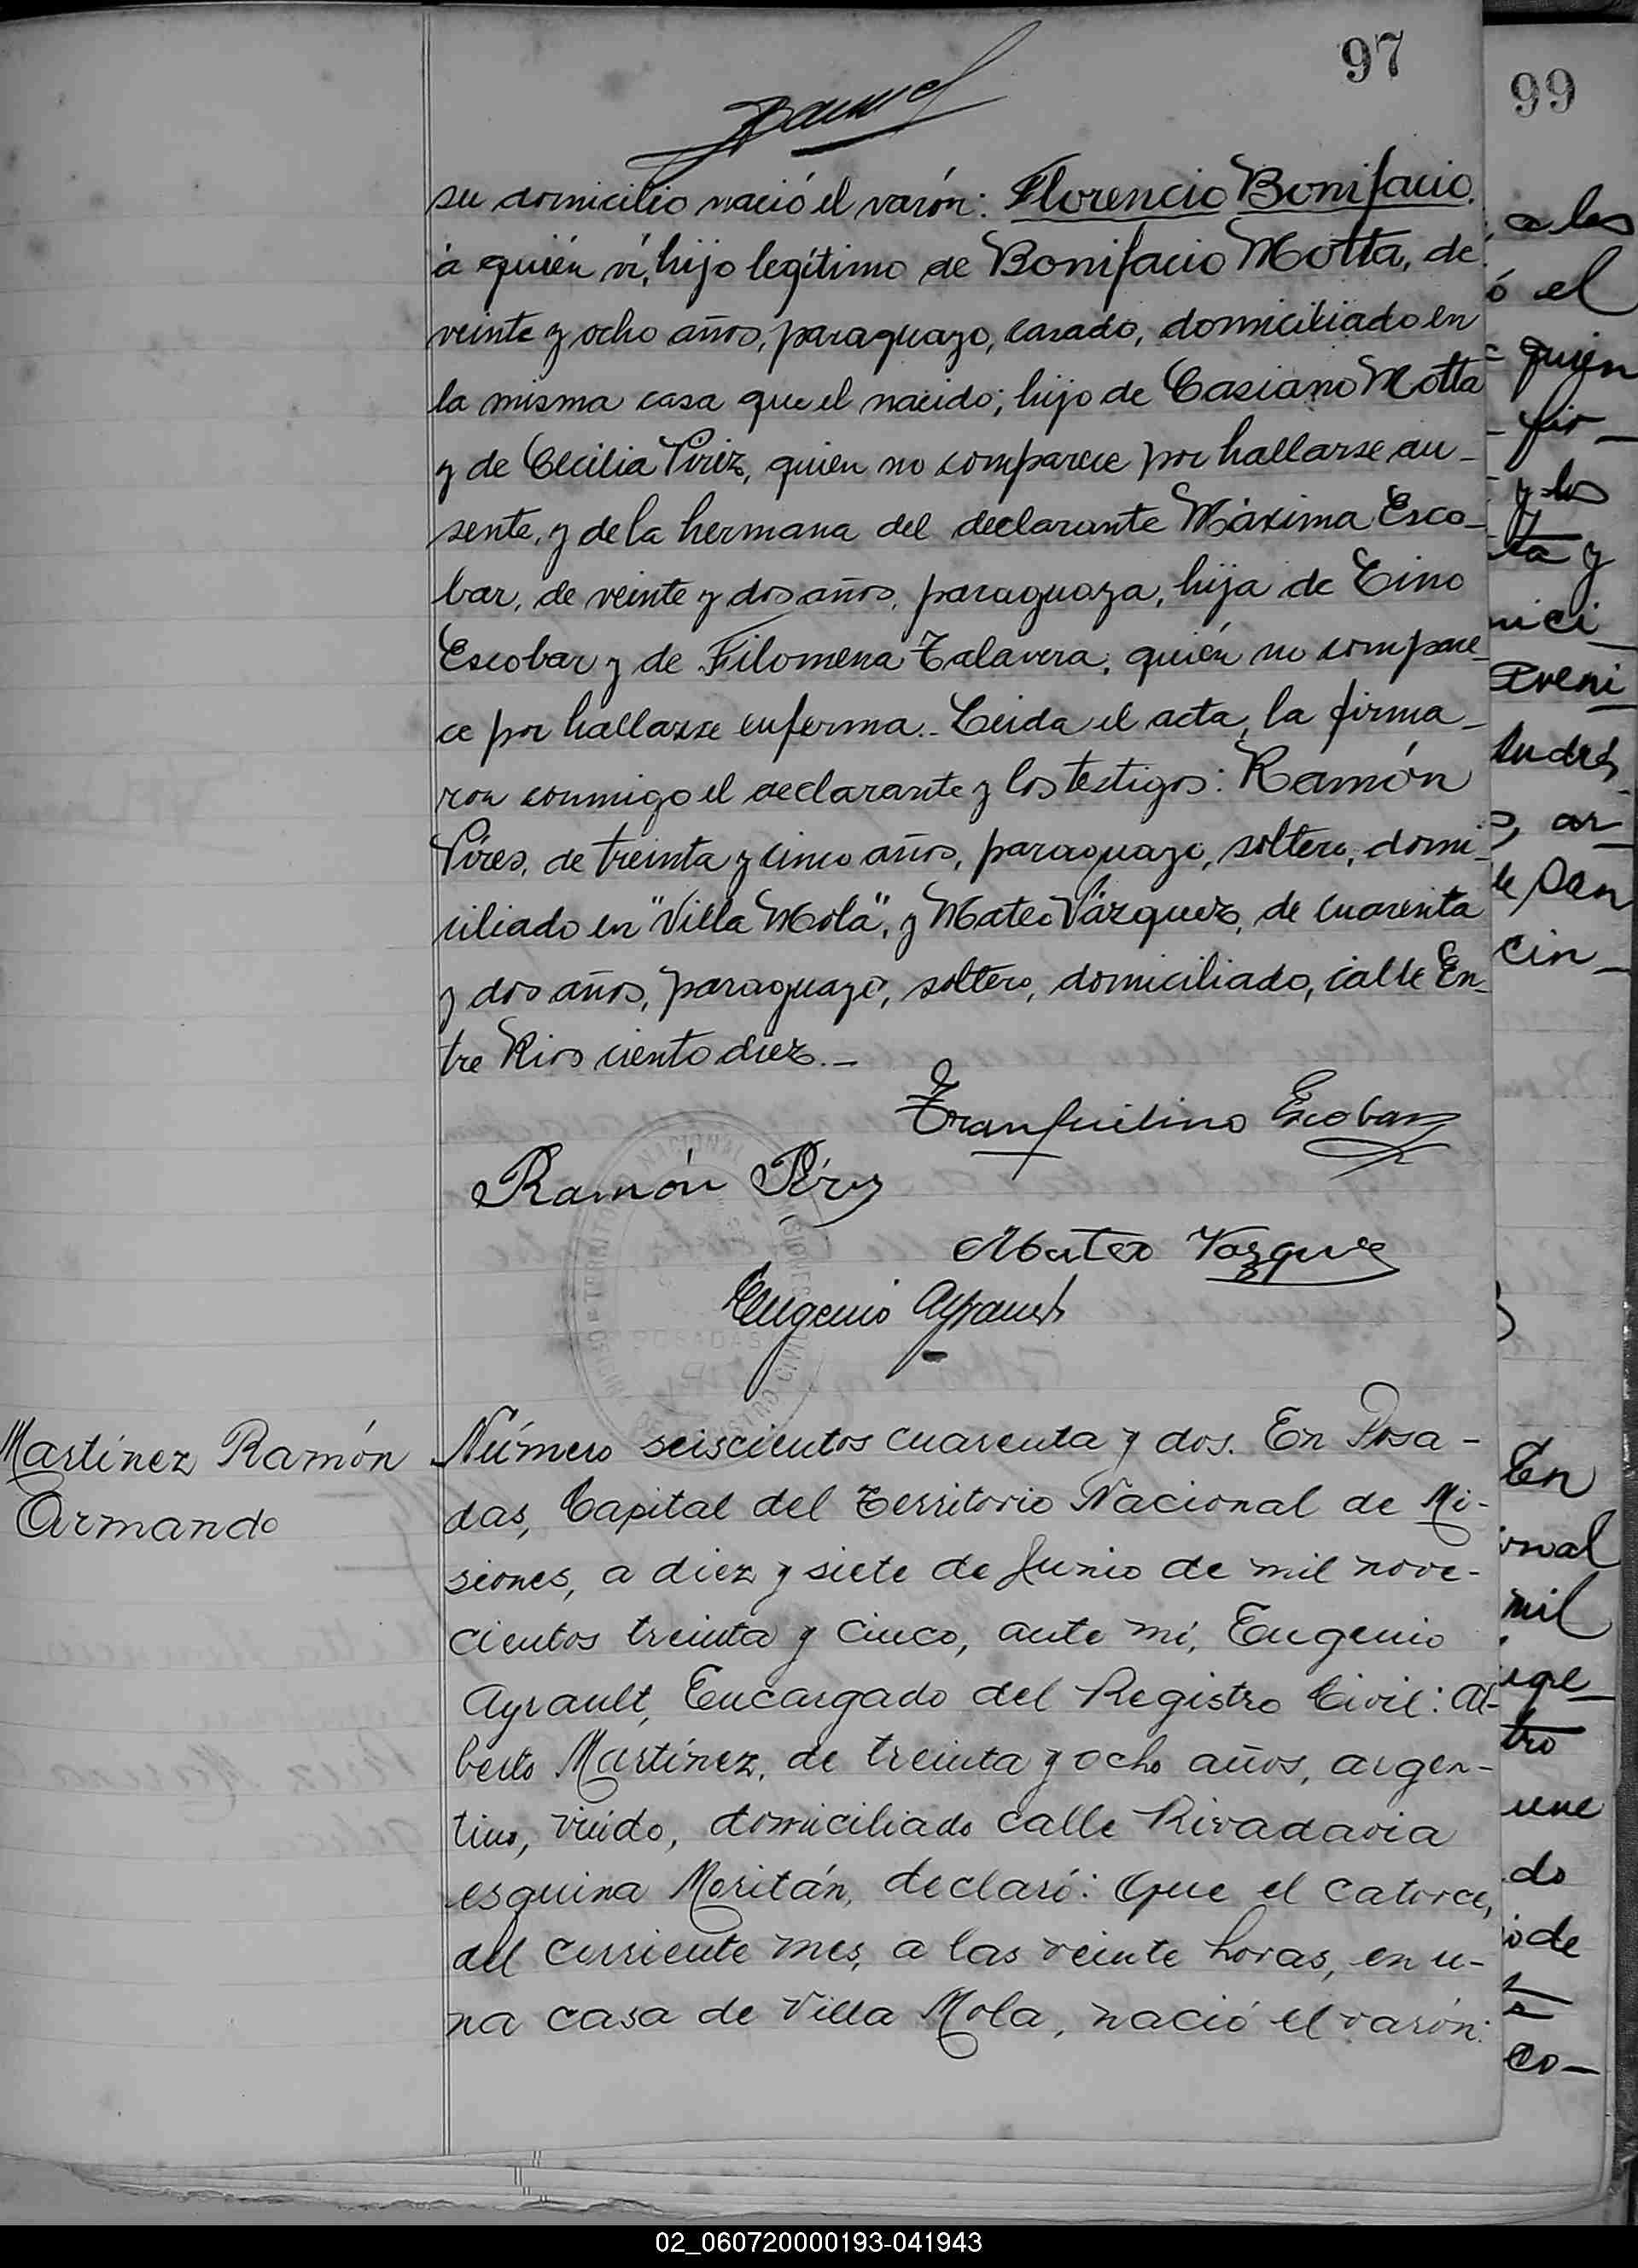 97
99
su domicilio nació el varón: Florencio Bonifacio.
á quién ví, hijo legítimo de Bonifacio Motta, de
veinte y ocho años, paraguayo, casado, domiciliado en
la misma casa que el nacido; hijo de Casiano Motta
y de Cecilia Pirez, quien no comparece por hallarse au-
sente, y de la hermana del declarante Máxima Esco-
bar, de veinte y dos años, paraguaya, hija de Lino
Escobar y de Filomena Talavera, quién no compare-
ce por hallarse enferma.- Leida el acta, la firma-
ron conmigo el declarante y los testigos: Ramón
Pires, de treinta y cinco años, paraguayo, soltero, domi-
ciliado en "Villa Mola", y Mateo Vázquez, de cuarenta
y dos años, paraguayo, soltero, domiciliado, calle En-
tre Rios ciento diez.-
Tranquilino Escobar
Ramón Pérez
Mateo Vazquez
Eugenio Ayrault
TERRITORIO NACIONAL MISIONES
POSADAS
Martínez Ramón
Armando
Número seiscientos cuarenta y dos. En Posa-
das, Capital del Territorio Nacional de Mi-
siones, a diez y siete de Junio de mil nove-
cientos treinta y cinco, ante mí, Eugenio
Ayrault, Encargado del Registro Civil: Al-
berto Martínez, de treinta y ocho años, argen-
tino, viúdo, domiciliado calle Rivadavia
esquina Moritán, declaró: Que el catorce,
del corriente mes, a las veinte horas, en u-
na casa de Villa Mola, nació el varón:
a los
ó el
quien
fir-
y los
ta y
nici-
Aveni-
Andrés
, ar-
de San
cin-
En
onal
mil
tro
une
do
de
co-
02_060720000193-041943